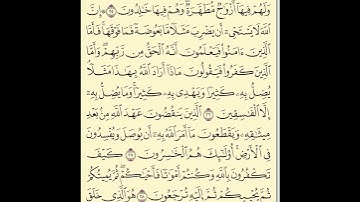 وَلَهُمْ فِيهَا أَزْوَاجٌ مُطَهَّرَةٌ وَهُمْ فِيهَا خَالِدُونَ ۝٢٥ إِنَّ
اللَّهَ لَا يَسْتَحْيِي أَنْ يَضْرِبَ مَثَلًا مَا بَعُوضَةً فَمَا فَوْقَهَا فَأَمَّا
الَّذِينَ ءَامَنُوا فَيَعْلَمُونَ أَنَّهُ الْحَقُّ مِنْ رَبِّهِمْ وَأَمَّا
الَّذِينَ كَفَرُوا فَيَقُولُونَ مَاذَا أَرَادَ اللَّهُ بِهَذَا مَثَلًا
يُضِلُّ بِهِ كَثِيرًا وَيَهْدِي بِهِ كَثِيرًا وَمَا يُضِلُّ بِهِ
إِلَّا الْفَاسِقِينَ ۝٢٦ الَّذِينَ يَنْقُضُونَ عَهْدَ اللَّهِ مِنْ بَعْدِ
مِيثَاقِهِ وَيَقْطَعُونَ مَا أَمَرَ اللَّهُ بِهِ أَنْ يُوصَلَ وَيُفْسِدُونَ
فِي الْأَرْضِ أُولَئِكَ هُمُ الْخَاسِرُونَ ۝٢٧ كَيْفَ
تَكْفُرُونَ بِاللَّهِ وَكُنْتُمْ أَمْوَاتًا فَأَحْيَاكُمْ ثُمَّ يُمِيتُكُمْ
ثُمَّ يُحْيِيكُمْ ثُمَّ إِلَيْهِ تُرْجَعُونَ ۝٢٨ هُوَ الَّذِي خَلَقَ